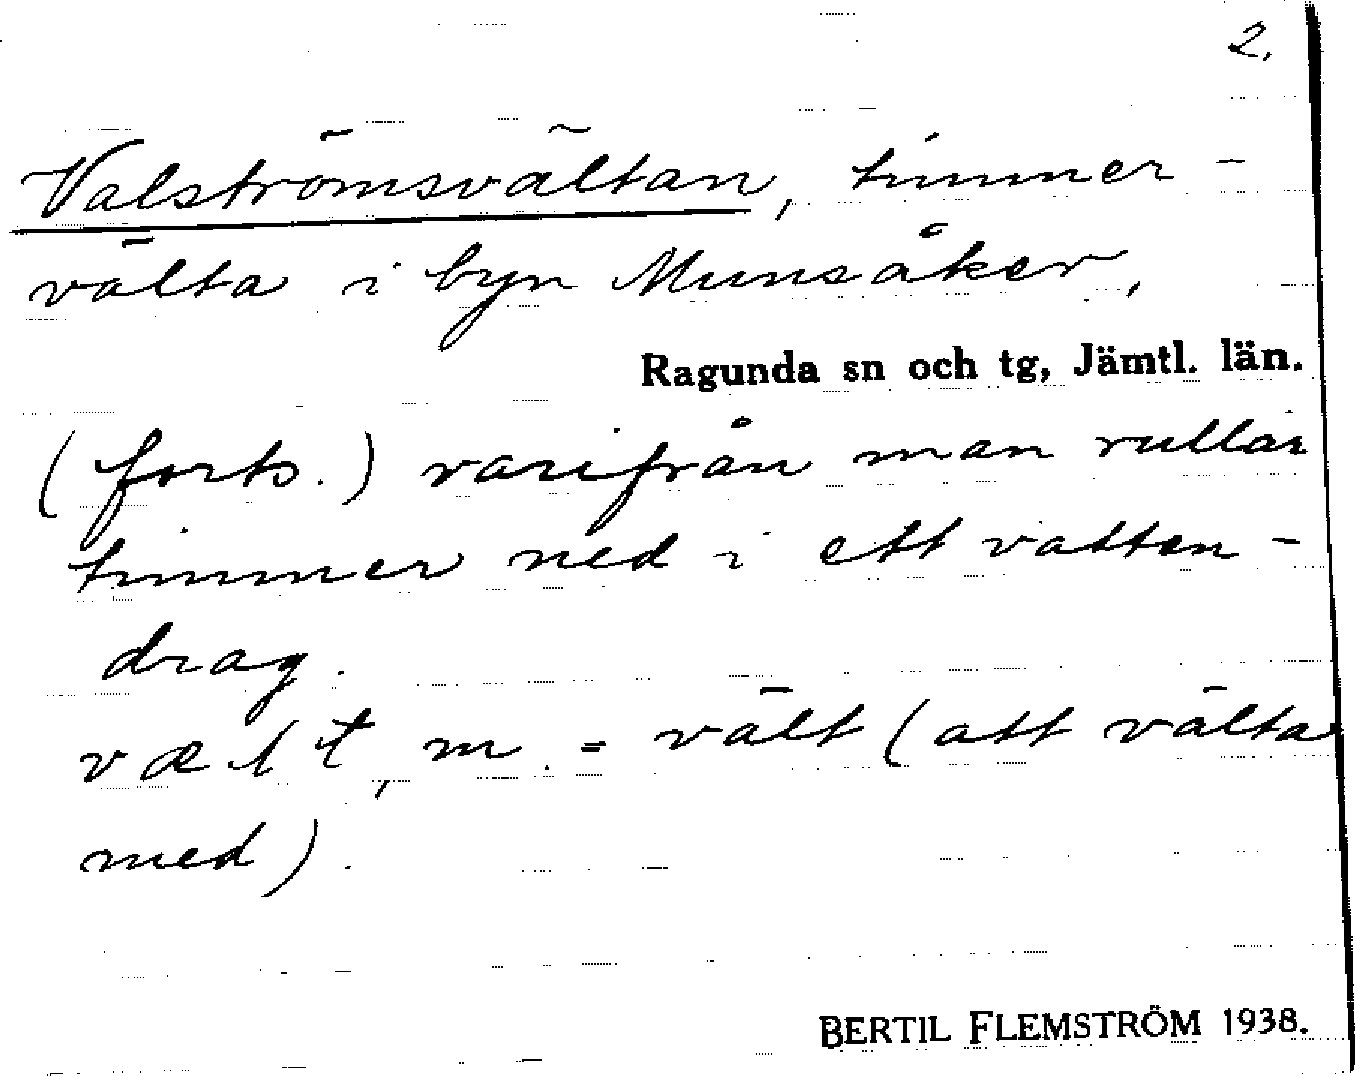 2.
Valströmsvältan, timmer-
välta i byn Munsåker,
Ragunda sn och tg, Jämtl. län.
(forts.) varifrån man rullar
timmer ned i ett vatten-
drag.
væl t, m. = vält (att välta
med).
BERTIL FLEMSTRÖM 1938.